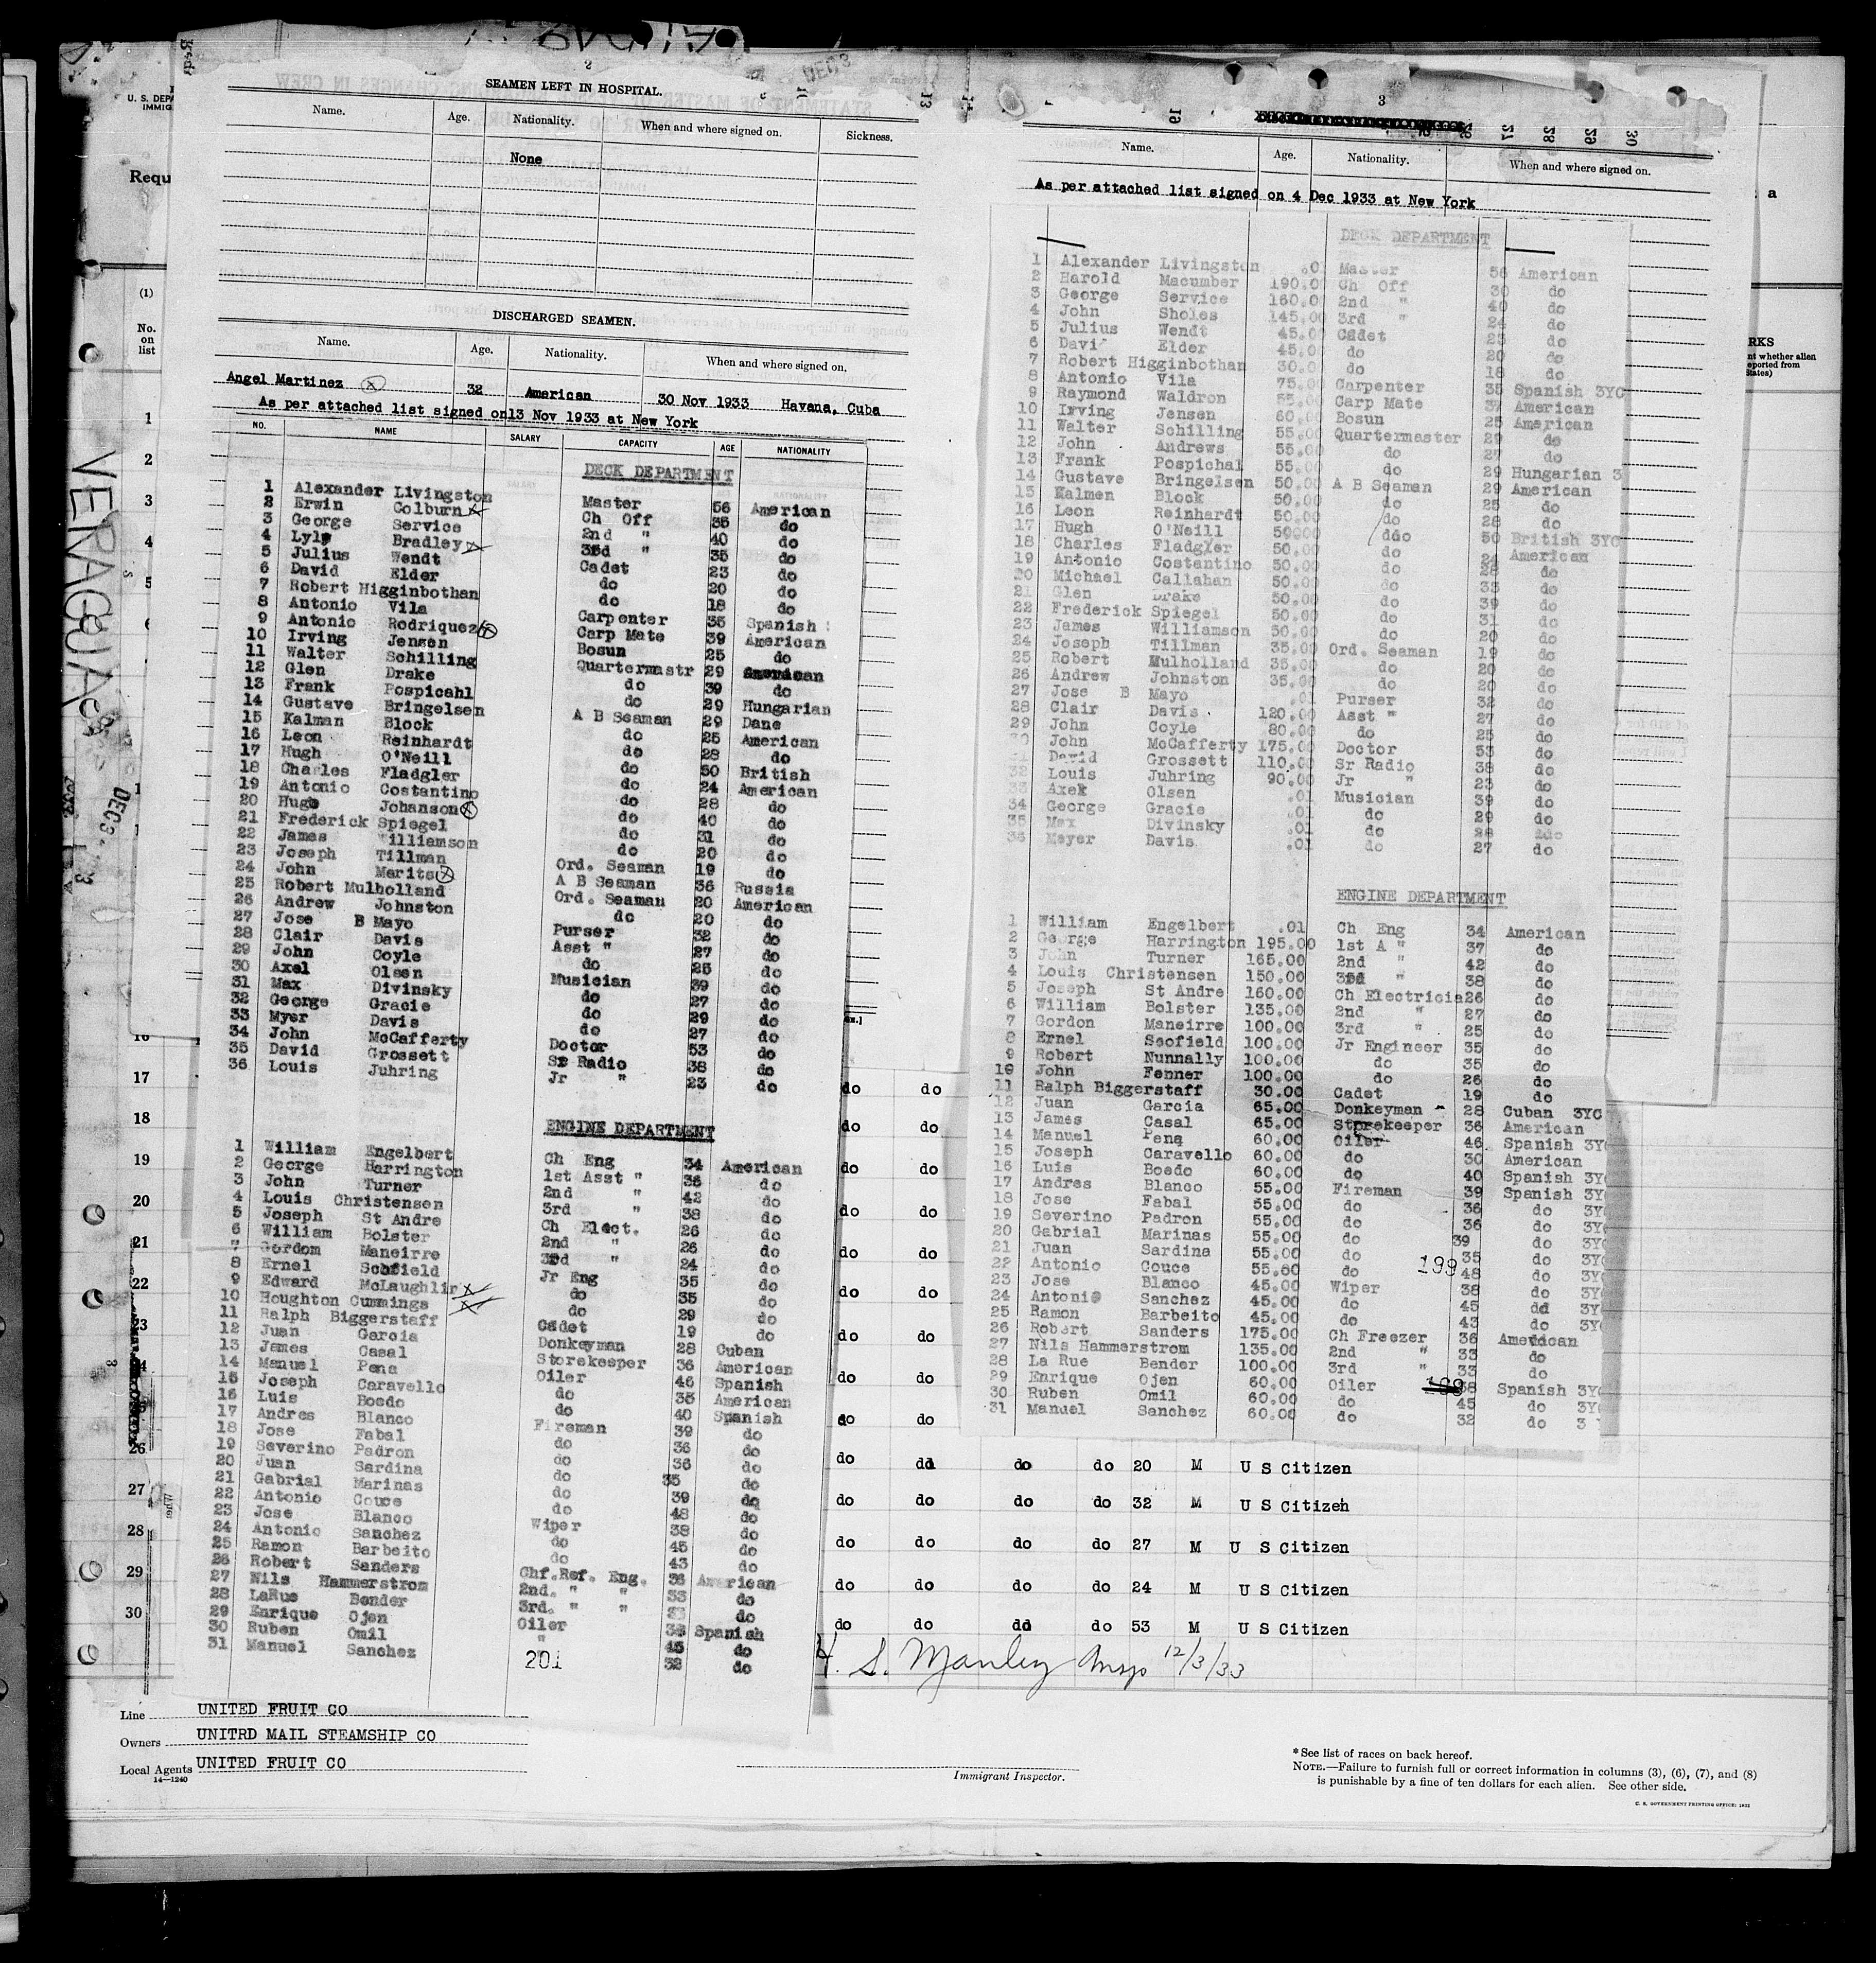 SEAMEN LEFT IN HOSPITAL.
Name. Age. Nationality. When and where signed on. Sickness.
None
DISCHARGED SEAMEN.
Name. Age. Nationality. When and where signed on.
Angel Martinez 32 American 30 Nov 1933 Havana, Cuba
As per attached list signed on13 Nov 1933 at New York
NO. NAME SALARY CAPACITY AGE NATIONALITY
DECK DEPARTMENT
1 Alexander Livingston Master 56 American
2 Erwin Colburn Ch Off 35 do
3 George Service 2nd " 40 do
4 Lyle Bradley 3rd " 35 do
5 Julius Wendt Cadet 23 do
6 David Elder do 20 do
7 Robert Higginbothan do 18 do
8 Antonio Vila Carpenter 35 Spanish
9 Antonio Rodriquez Carp Mate 39 American
10 Irving Jensen Bosun 25 do
11 Walter Schilling Quartermastr 29 American
12 Glen Drake do 39 do
13 Frank Pospicahl do 29 Hungarian
14 Gustave Bringelsen A B Seaman 29 Dane
15 Kalman Block do 25 American
16 Leon Reinhardt do 28 do
17 Hugh O'Neill do 50 British
18 Charles Fladgler do 24 American
19 Antonio Costantino do 28 do
20 Hugo Johanson do 40 do
21 Frederick Spiegel do 31 do
22 James Williamson do 20 do
23 Joseph Tillman Ord. Seaman 19 do
24 John Marits A B Seaman 36 Russia
25 Robert Mulholland Ord. Seaman 20 American
26 Andrew Johnston do 20 do
27 Jose B Mayo Purser 32 do
28 Clair Davis Asst " 27 do
29 John Coyle do 25 do
30 Axel Olsen Musician 39 do
31 Max Divinsky do 27 do
32 George Gracie do 29 do
33 Myer Davis do 27 do
34 John McCafferty Doctor 53 do
35 David Grossett Sr Radio 38 do
36 Louis Juhring Jr " 23 do
ENGINE DEPARTMENT
1 William Engelbert Ch Eng 34 American
2 George Harrington 1st Asst " 36 do
3 John Turner 2nd " 42 do
4 Louis Christensen 3rd " 38 do
5 Joseph St Andre Ch Elect. 26 do
6 William Bolster 2nd " 26 do
" Gordom Maneirre 3rd " 24 do
8 Ernel Scofield Jr Eng 35 do
9 Edward McLaughlin do 35 do
10 Houghton Cummings do 29 do
11 Ralph Biggerstaff Cadet 19 do
12 Juan Garcia Donkeyman 28 Cuban
13 James Casal Storekeeper 36 American
14 Manuel Pena Oiler 46 Spanish
15 Joseph Caravello do 35 American
16 Luis Boedo do 40 Spanish
17 Andres Blanco Fireman 39 do
18 Jose Fabal do 36 do
19 Severino Padron do 36 do
20 Juan Sardina do 35 do
21 Gabrial Marinas do 39 do
22 Antonio Couce do 48 do
23 Jose Blanco Wiper 38 do
24 Antonio Sanchez do 45 do
25 Ramon Barbeito do 43 do
26 Robert Sanders Chf.Ref. Eng. 36 American
27 Nils Hammerstrom 2nd. " " 33 do
28 LaRue Bender 3rd. " " 33 do
29 Enrique Ojen Oiler 38 Spanish
30 Ruben Omil " 45 do
31 Manuel Sanchez 201 32 do
3
Name. Age. Nationality. When and where signed on.
As per attached list signed on 4 Dec 1933 at New York
DECK DEPARTMENT
1 Alexander Livingston .01 Master 56 American
2 Harold Macumber 190.00 Ch Off 30 do
3 George Service 160.00 2nd " 40 do
4 John Sholes 145.00 3rd " 24 do
5 Julius Wendt 45.00 Cadet 23 do
6 David Elder 45.00 do 20 do
7 Robert Higginbothan 30.00 do 18 do
8 Antonio Vila 75.00 Carpenter 35 Spanish 3YC
9 Raymond Waldron 55.00 Carp Mate 37 American
10 Irving Jensen 60.00 Bosun 25 American
11 Walter Schilling 55.00 Quartermaster 29 do
12 John Andrews 55.00 do 27 do
13 Frank Pospichal 55.00 do 29 Hungarian 3
14 Gustave Bringelsen 50.00 A B Seaman 29 American
15 Kalmen Block 50.00 do 25 do
16 Leon Reinhardt 50.00 do 28 do
17 Hugh O'Neill 50000 ddo 50 British 3YC
18 Charles Fladgler 50.00 do 24 American
19 Antonio Costantino 50.00 do 28 do
20 Michael Callahan 50.00 do 33 do
21 Glen Drake 50.00 do 39 do
22 Frederick Spiegel 50.00 do 31 do
23 James Williamson 50.00 do 20 do
24 Joseph Tillman 35.00 Ord. Seaman 19 do
25 Robert Mulholland 35.00 do 20 do
26 Andrew Johnston 35.00 do 20 do
27 Jose B Mayo .01 Purser 32 do
28 Clair Davis 120.00 Asst " 27 do
29 John Coyle 80.00 do 25 do
30 John McCafferty 175.00 Doctor 53 do
31 David Grossett 110.00 Sr Radio 38 do
32 Louis Juhring 90.00 Jr " 23 do
33 Axek Olsen .01 Musician 39 do
34 George Gracie .01 do 29 do
35 Max Divinsky .01 do 28 do
36 Meyer Davis .01 do 27 do
ENGINE DEPARTMENT
1 William Engelbert .01 Ch Eng 34 American
2 George Harrington 195.00 1st A " 37 do
3 John Turner 165.00 2nd " 42 do
4 Louis Christensen 150.00 3rd " 38 do
5 Joseph St Andre 160.00 Ch Electricia 26 do
6 William Bolster 135.00 2nd " 27 do
7 Gordon Maneirre 100.00 3rd " 25 do
8 Ernel Scofield 100.00 Jr Engineer 35 do
9 Robert Nunnally 100.00 do 35 do
10 John Fenner 100.00 do 26 do
11 Ralph Biggerstaff 30.00 Cadet 19 do
12 Juan Garcia 65.00 Donkeyman 28 Cuban 3YC
13 James Casal 65.00 Storekeeper 36 American
14 Manuel Pena 60.00 Oiler 46 Spanish 3Y
15 Joseph Caravello 60.00 do 30 American
16 Luis Boedo 60.00 do 40 Spanish 3Y
17 Andres Blanco 55.00 Fireman 39 Spanish 3Y
18 Jose Fabal 55.00 do 36 do 3Y
19 Severino Padron 55.00 do 36 do 3Y
20 Gabrial Marinas 55.00 do 39 do 3Y
21 Juan Sardina 55.00 do 35 do 3Y
22 Antonio Couce 55.00 do 199 48 do 3Y
23 Jose Blanco 45.00 Wiper 38 do 3Y
24 Antonio Sanchez 45.00 do 45 dd 3Y
25 Ramon Barbeito 45.00 do 43 do 3Y
26 Robert Sanders 175.00 Ch Freezer 36 American
27 Nils Hammerstrom 135.00 2nd " 33 do
28 La Rue Bender 100.00 3rd " 33 do
29 Enrique Ojen 60.00 Oiler 38 Spanish 3Y
30 Ruben Omil 60.00 do 45 do 3Y
31 Manuel Sanchez 60.00 do 32 do 3
U. S. DEPA
IMMIG
Requ
(1)
No. on list
VERAGUA
DEC 3
1
2
3
4
5
6
17 do do
18 do do
19 do do
20 do do
21 do do
22 do do
23 do do
24 do do
do do
26 do dd do do 20 M U S Citizen
27 do do do do 32 M U S Citizen
28 do do do do 27 M U S Citizen
29 do do do do 24 M U S Citizen
30 do do dd do 53 M U S Citizen
H. S. Manley Insp 12/3/33
Line UNITED FRUIT CO
Owners UNITRD MAIL STEAMSHIP CO
Local Agents UNITED FRUIT CO
14—1240
Immigrant Inspector.
*See list of races on back hereof.
NOTE.—Failure to furnish full or correct information in columns (3), (6), (7), and (8)
is punishable by a fine of ten dollars for each alien. See other side.
U. S. GOVERNMENT PRINTING OFFICE: 1932